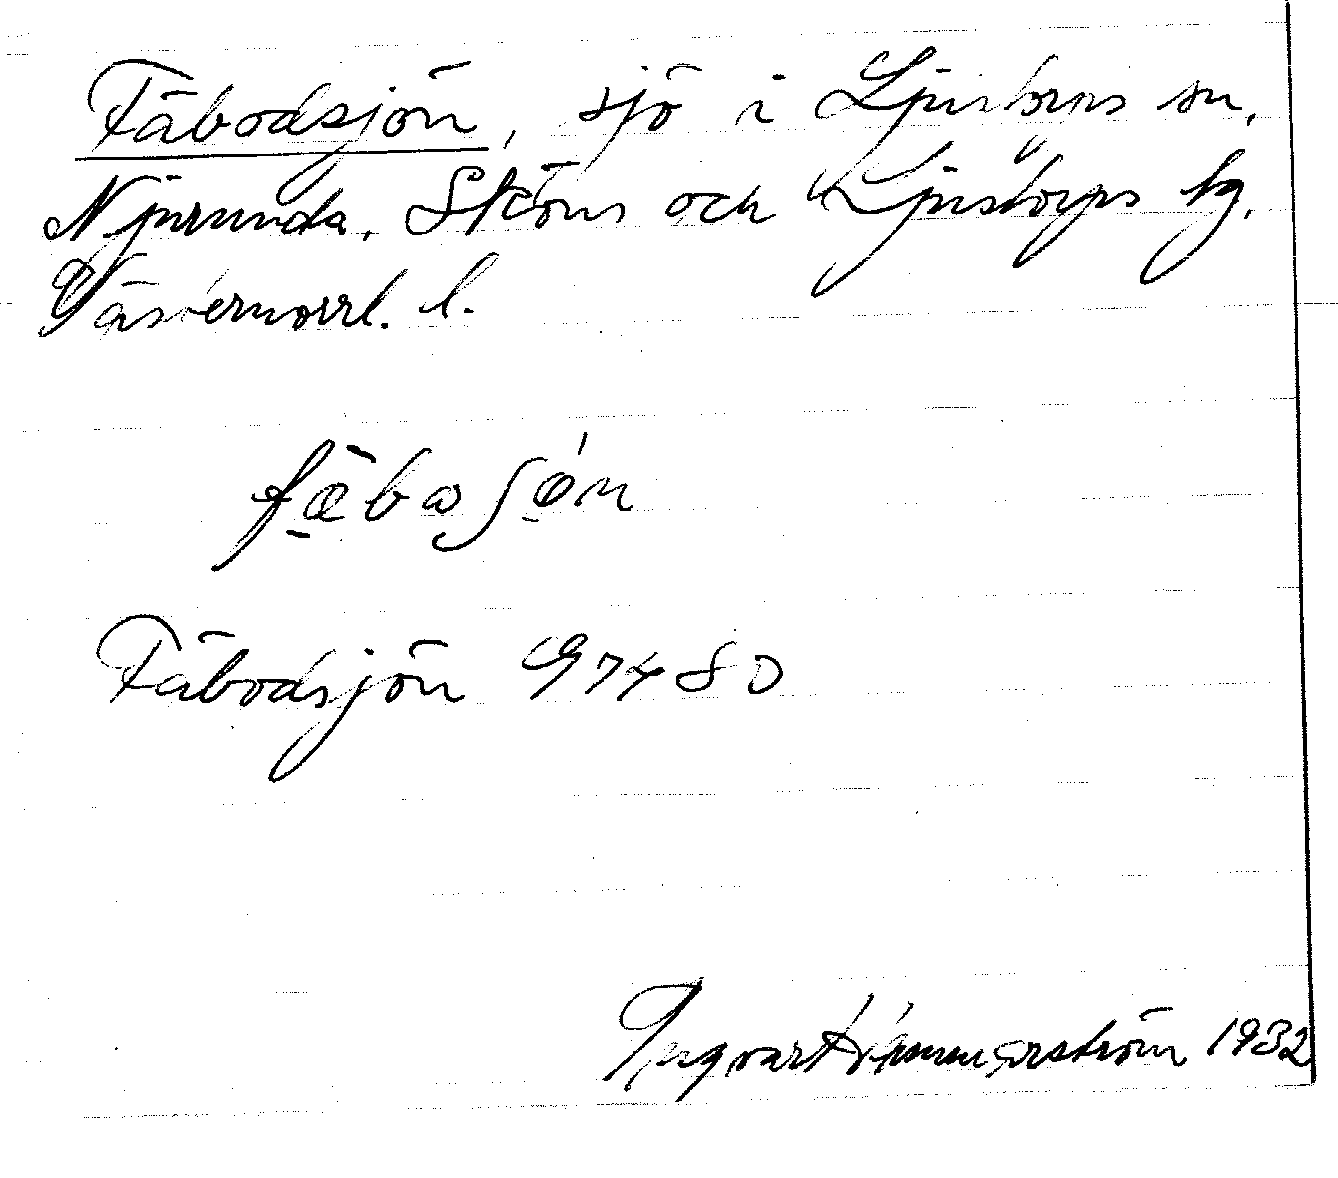 Fäbodsjön, sjö i Ljustorps sn,
Njurunda, Sköns och Ljustorps tg,
Västernorrl. l.
Fäbodsjön G 7480
Ingvar Hammarström 1932